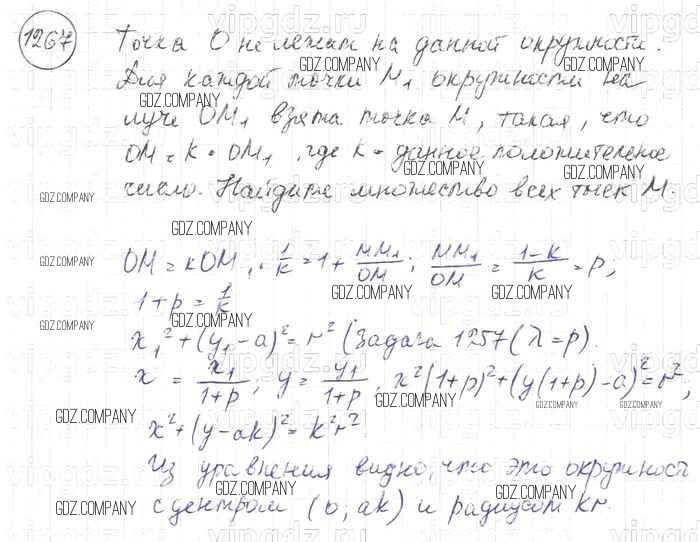 1267 Точка O не лежит на данной окружности.
Для каждой точки M₁ окружности на
луче OM₁ взята точка M, такая, что
OM = k · OM₁, где k - данное положительное
число. Найдите множество всех точек M.
OM = kOM₁, 1/k = 1 + MM₁/OM; MM₁/OM = (1-k)/k = p,
1 + p = 1/k
x₁² + (y₁ - a)² = r² (Задача 1257 (λ = p).
x = x₁/(1+p); y = y₁/(1+p), x²(1+p)² + (y(1+p) - a)² = r²,
x² + (y - ak)² = k²r²
Из уравнения видно, что это окружность
с центром (0, ak) и радиусом kr.
GDZ.COMPANY
vipgdz.ru